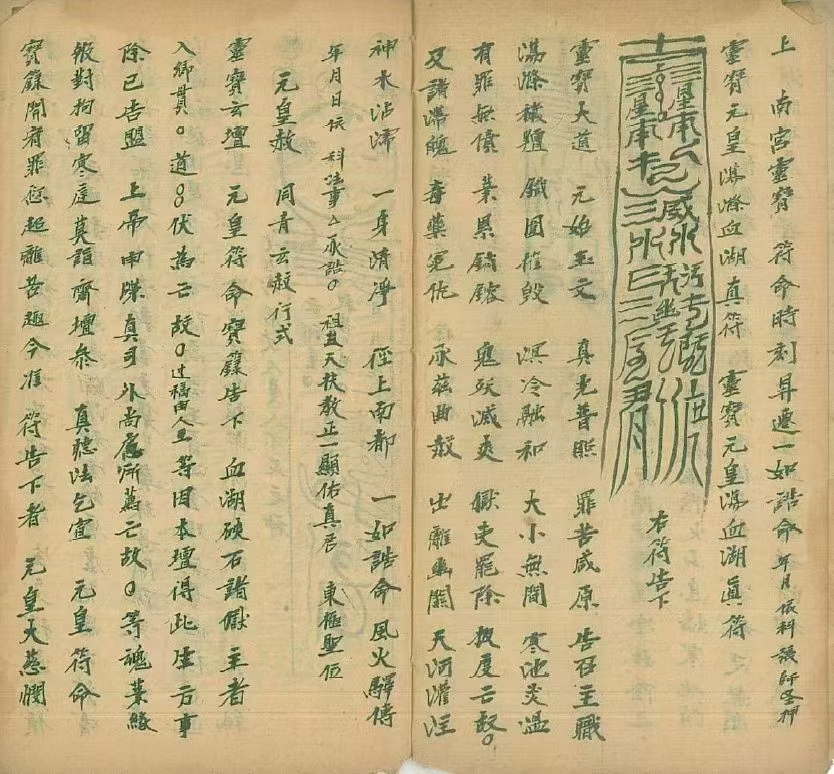 上 南宮靈寶 符命時刻昇遷一如誥命 年月依科張師玉押
靈寶元皇蕩滌血湖真符 靈寶元皇蕩血湖真符
右符告下
靈寶大道 元始玉文 真光普照 罪苦咸原 告召主職
蕩滌穢 鐵圍摧毀 溟冷融和 大小無間 寒池炎溫
有罪無債 業累銷鎔 鬼妖滅爽 獄吏罷除 拔度亡故〇
及諸滯魄 毒藥冤仇 承茲曲赦 出離幽關 天河灌注
神水沾濡 一身清凈 徑上南都 一如誥命 風火驛傳
年月日依 科法事 承誥〇 祖 天扶教正一顯佑真君 東極聖位
元皇赦 同青玄赦行式
靈寶玄壇 元皇符命寶籙告下 血湖硤石諸獄主者
入鄉貫〇道〇〇伏為亡故〇 等因本壇得此生方事
除已告盟 上帝申牒真司外尚慮所薦亡故〇等魂業緣
報對拘留寒庭莫詣齋壇參 真聽法乞宣 元皇符命
寶籙開宥罪愆超離苦趣今准 符告下者 元皇大慈憫